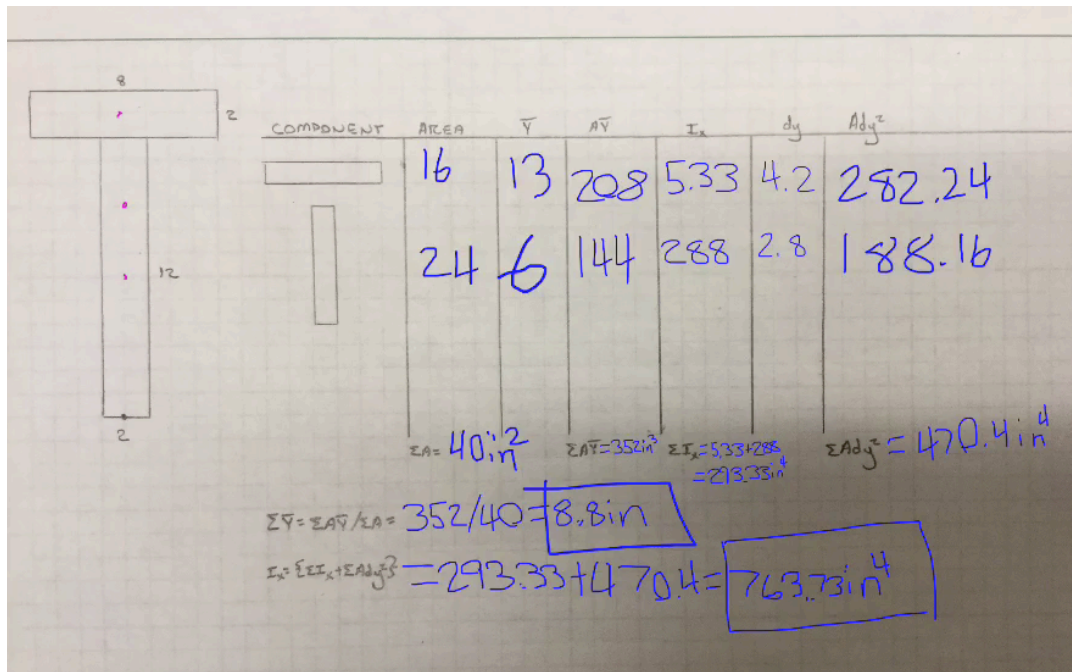 8
2
COMPONENT AREA Ȳ AȲ Iₓ dy Ady²
16 13 208 5.33 4.2 282.24
24 6 144 288 2.8 188.16
12
2
ΣA= 40in² ΣAȲ=352in³ ΣIₓ=5.33+288 ΣAdy² =470.4in⁴
=293.33in⁴
ΣȲ=ΣAȲ/ΣA= 352/40=8.8in
Iₓ={ΣIₓ+ΣAdy²} =293.33+470.4= 763.73in⁴